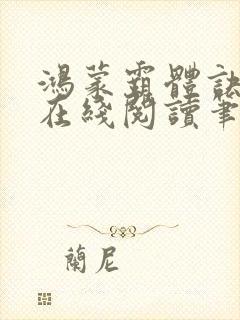 鴻蒙霸體訣
在綫閱讀筆
蘭尼